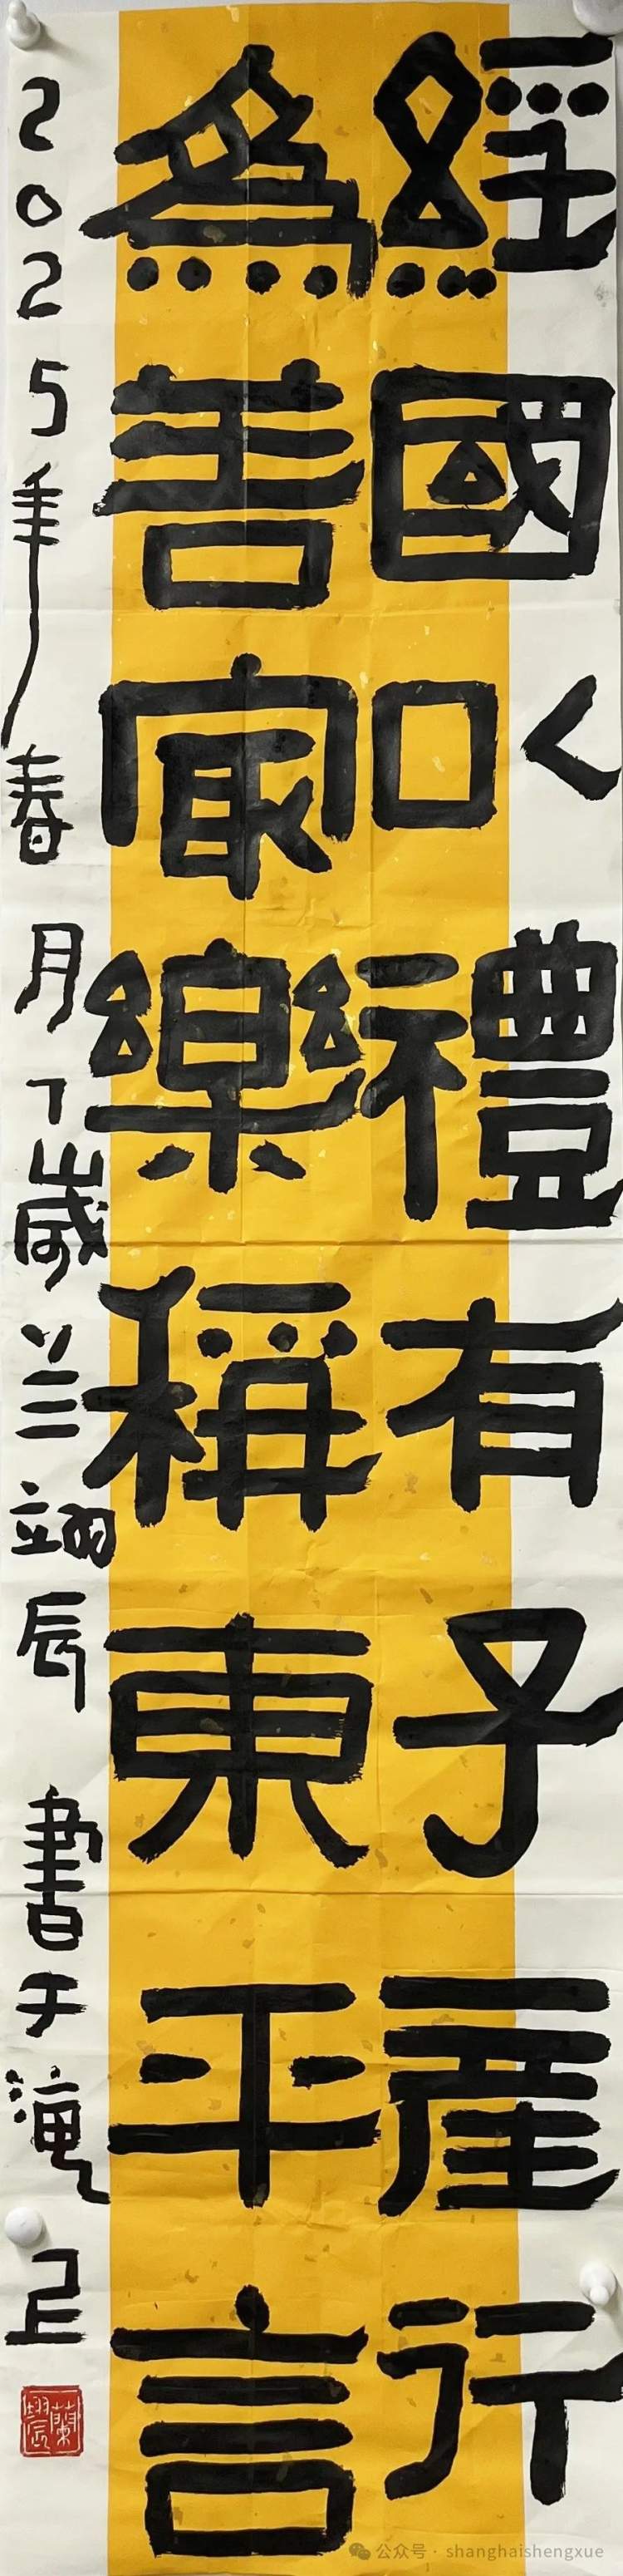 經國以禮有子產行
為善最樂稱東平言
2025年春月7歲兰翊辰書于滬上
蘭翊辰
公众号 · shanghaishengxue